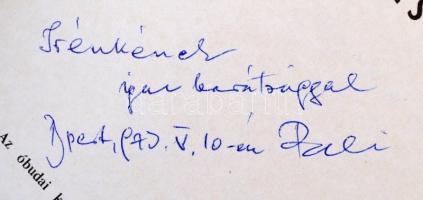 Irénkének
igaz barátsággal
Bpest, 973. V. 10-én Pali
Az óbudai